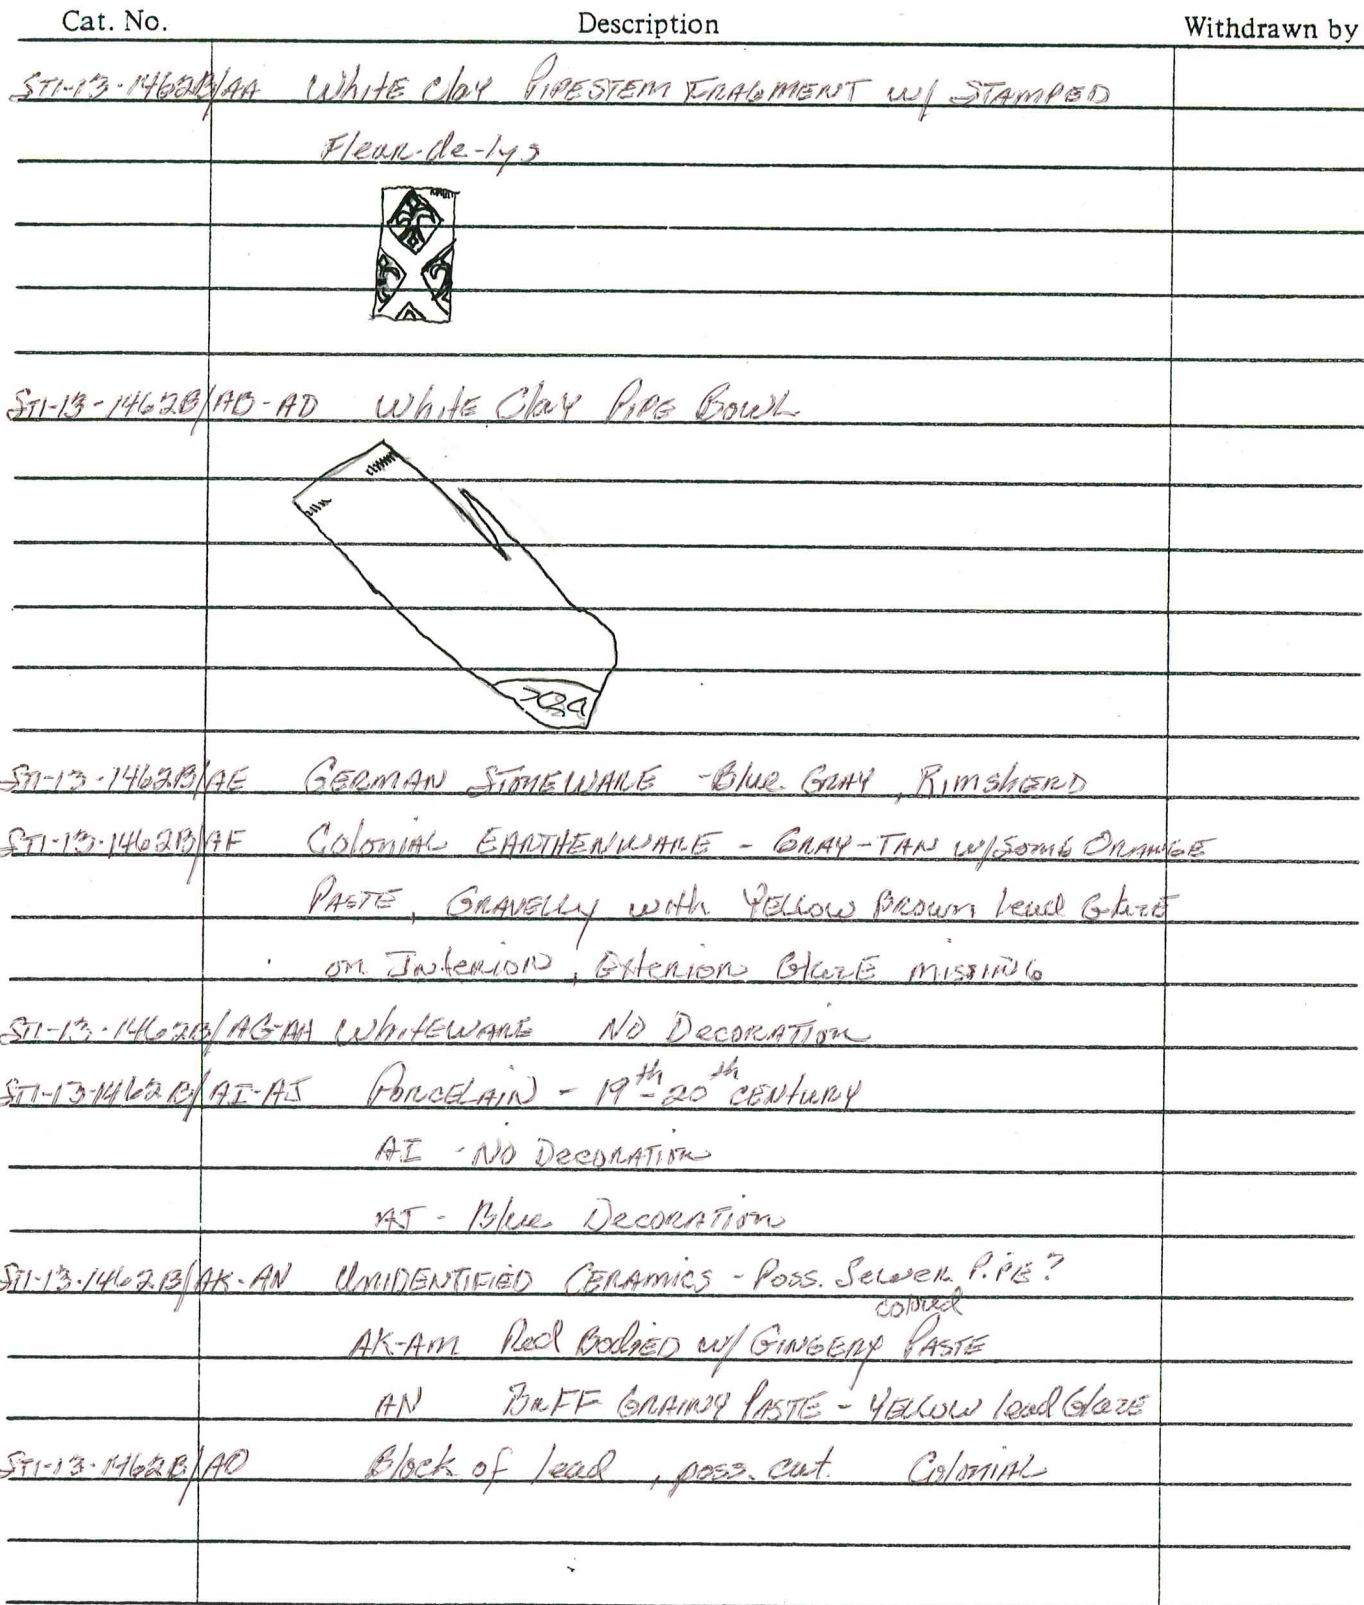 Cat. No. Description Withdrawn by
STI-13-1462B/AA White Clay PIPESTEM FRAGMENT w/ STAMPED
Fleur-de-lys
STI-13-1462B/AB-AD White Clay PIPE BOWL
STI-13-1462B/AE GERMAN STONEWARE - Blue GRAY, RIMSHERD
STI-13-1462B/AF Colonial EARTHENWARE - GRAY-TAN w/ Some ORANGE
PASTE, GRAVELLY with YELLOW BROWN lead Glaze
on INTERIOR, Exterior GlazE missing
STI-13-1462B/AG-AH WhiteWARE NO DECORATION
STI-13-1462B/AI-AJ PORCELAIN - 19th-20th CENTURY
AI - NO DECORATION
AJ - Blue DECORATION
STI-13-1462B/AK-AN UNIDENTIFIED CERAMICS - Poss. Sewer PIPE?
colored
AK-AM Red Bodied w/ GINGERY PASTE
AN BUFF GRAINY PASTE - YELLOW lead Glaze
STI-13-1462B/AO Block of lead, poss. cut. Colonial